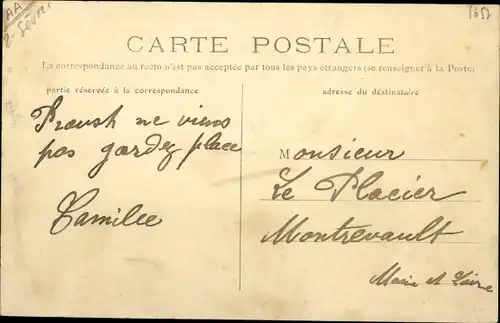 AA
2-Sèvres
1657
CARTE POSTALE
La correspondance au recto n'est pas acceptée par tous les pays étrangers (se renseigner à la Poste)
partie réservée à la correspondance
Proush ne viens
pas gardez place
Camille
adresse du destinataire
Monsieur
Le Placier
Montrevault
Maine et Loire